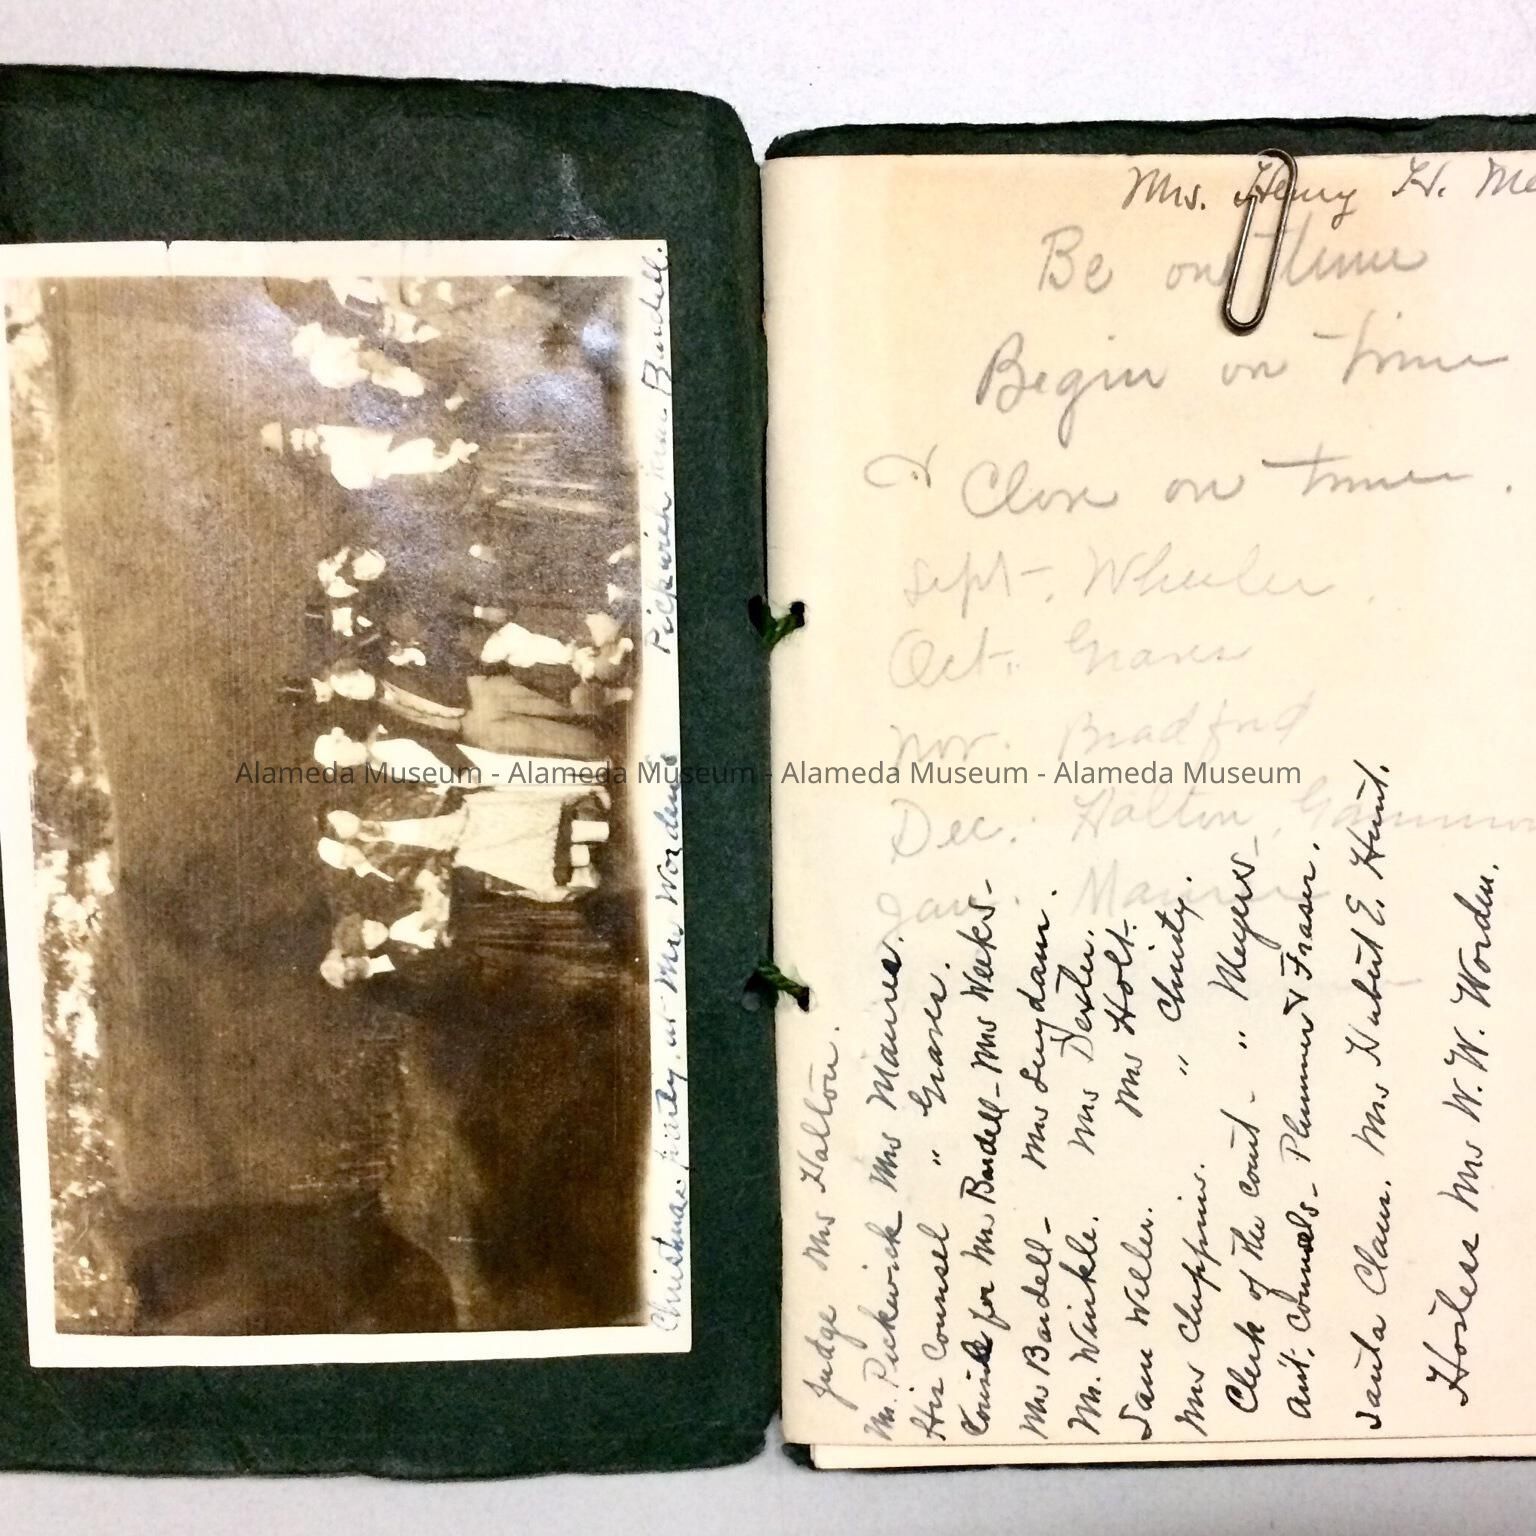 Christmas party, at Mrs Worden's Pickwick
Bardell.
Mrs. Henry H. Me
Be on time
Begin on time
& Close on time.
Sept. Wheeler.
Oct. Graves
Nov. Bradford
Dec. Halton,
Jan. Maurer
Judge Mrs Halton.
Mr. Pickwick Mrs Maurer.
His Counsel " Graves.
Counsel for Mrs Bardell - Mrs Weeks -
Mrs Bardell - Mrs Suydam.
Mr. Winkle. Mrs Dexter.
Sam Weller. Mrs Holt.
Mrs Cluppins. " Christy.
Clerk of the Court - " Meyers -
Ast. Counsels - Plummer & Fraser.
Santa Claus. Mrs Hubert E. Hunt.
Hostess Mrs W. W. Worden.
Alameda Museum - Alameda Museum - Alameda Museum - Alameda Museum